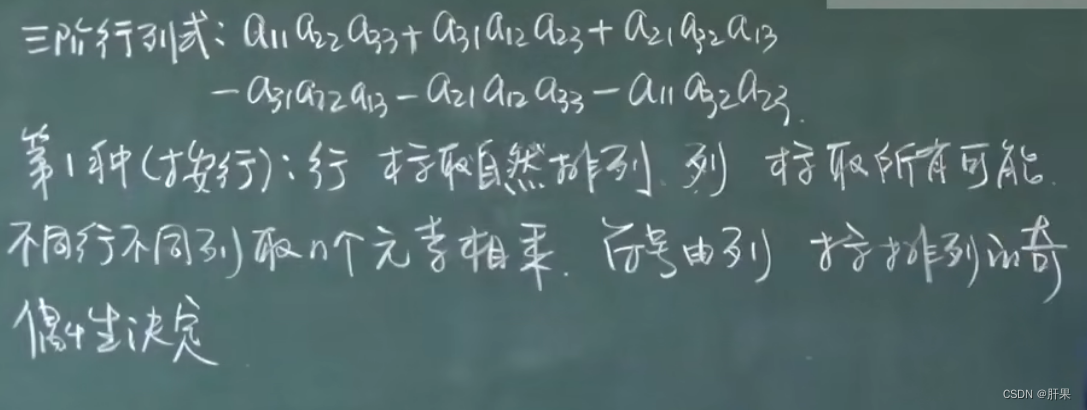 三阶行列式: a₁₁a₂₂a₃₃+a₃₁a₁₂a₂₃+a₂₁a₃₂a₁₃
-a₃₁a₂₂a₁₃-a₂₁a₁₂a₃₃-a₁₁a₃₂a₂₃.
第1种(按行):行 标取自然排列. 列 标取所有可能.
不同行不同列取n个元素相乘. 符号由列 标排列的奇
偶性决定
CSDN @肝果